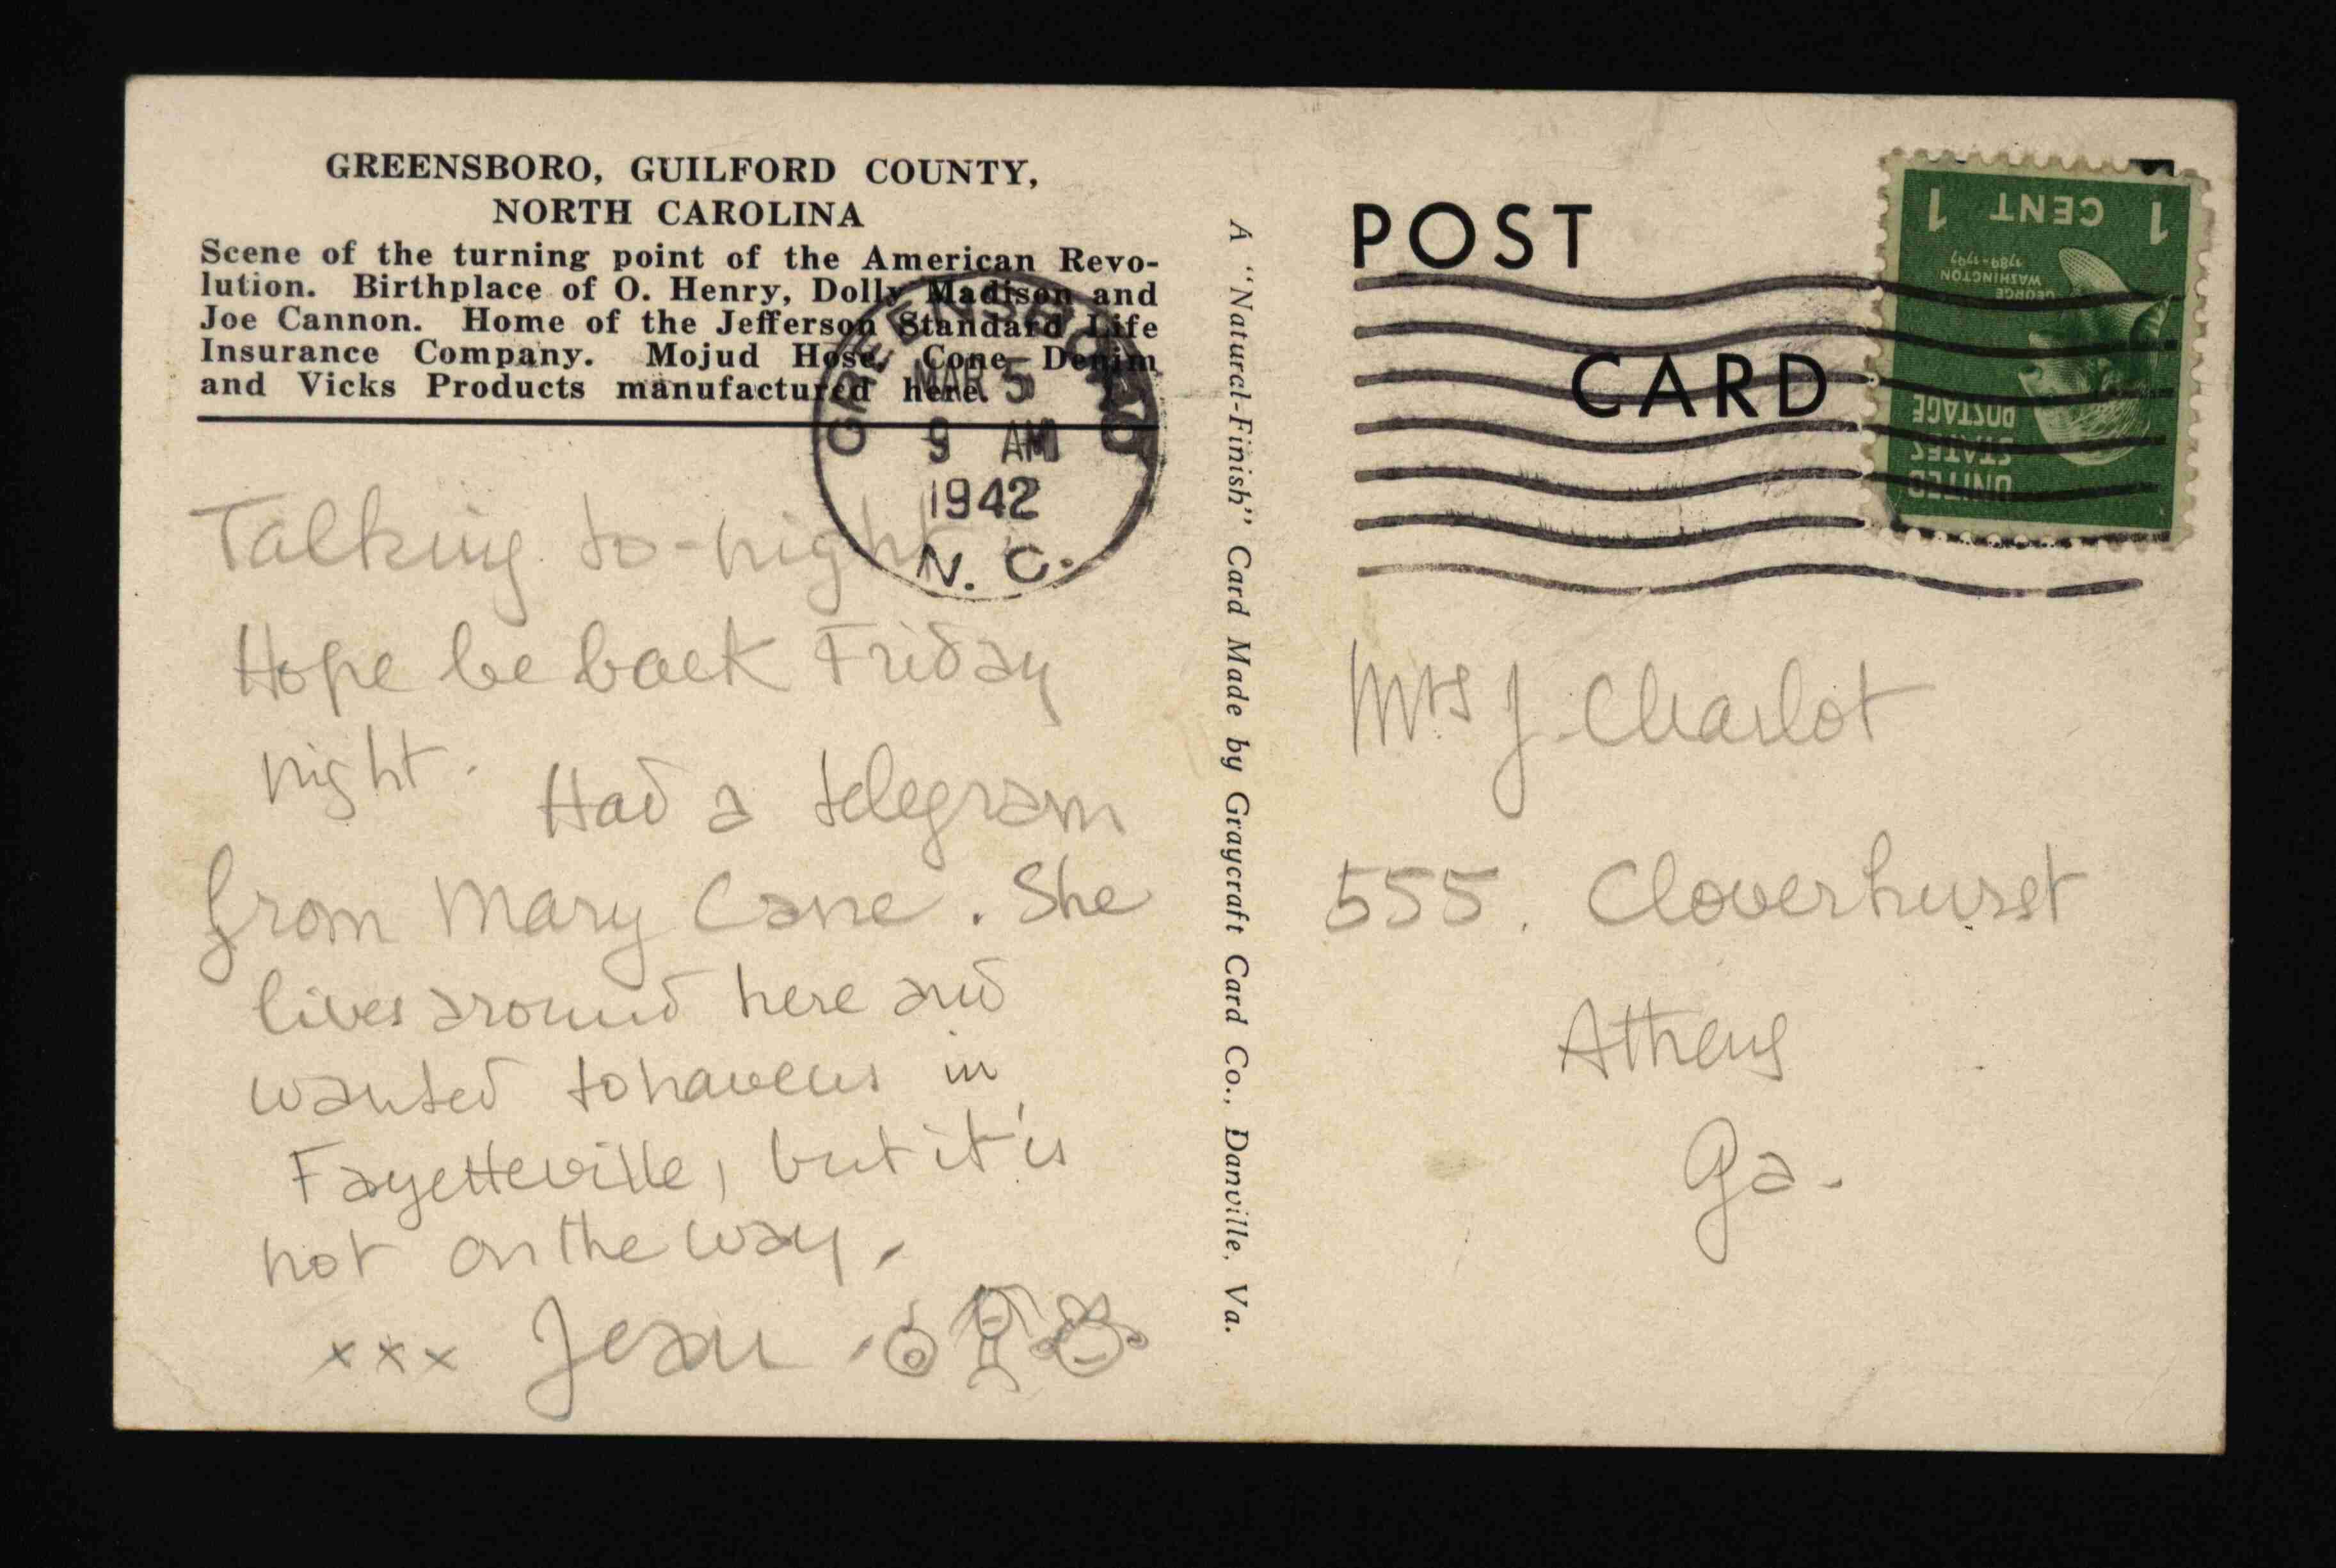 GREENSBORO, GUILFORD COUNTY,
NORTH CAROLINA
Scene of the turning point of the American Revo-
lution. Birthplace of O. Henry, Dolly Madison and
Joe Cannon. Home of the Jefferson Standard Life
Insurance Company. Mojud Hose, Cone Denim
and Vicks Products manufactured here.
GREENSBORO
MAR 5
9 AM
1942
N. C.
Talking to-night
Hope be back Friday
night. Had a telegram
from Mary Cane. She
lives around here and
wanted to have us in
Fayetteville, but it is
not on the way.
xxx Jean
A "Natural-Finish" Card Made by Graycraft Card Co., Danville, Va.
POST
CARD
1 CENT 1
GEORGE
WASHINGTON
1789-1797
UNITED
STATES
POSTAGE
Mrs J. Charlot
555. Cloverhurst
Athens
Ga.